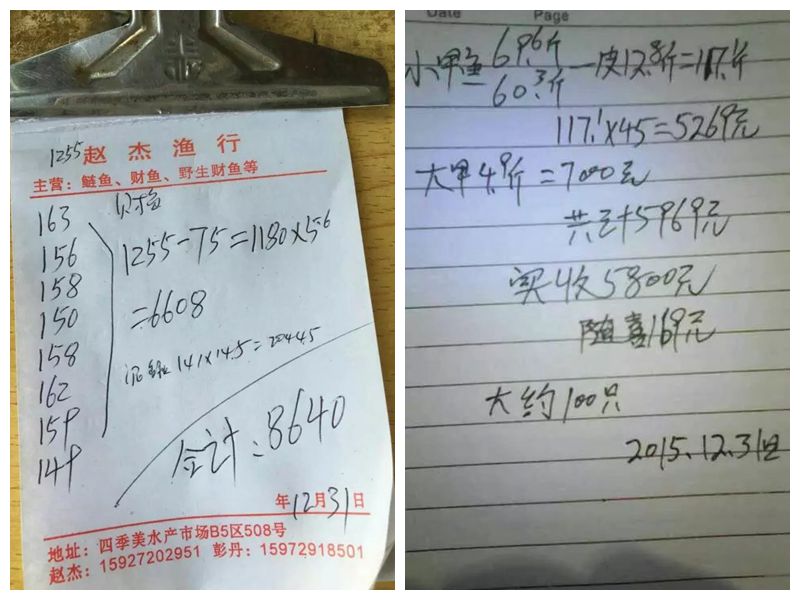 1255 赵杰渔行
主营：鲢鱼、财鱼、野生财鱼等
财鱼
163
156
158
150
158
162
159
149
1255-75=1180×5.6
=6608
泥鳅 141×14.5=2044.5
合计：8640
年12月31日
地址：四季美水产市场B5区508号
赵杰：15927202951 彭丹：15972918501
Date Page
小甲鱼 69.6斤
60.3斤 -皮12.8斤=117.1斤
117.1×45=5269元
大甲4.9斤=700元
共计5969元
实收5800元
随喜169元
大约100只
2015.12.31日